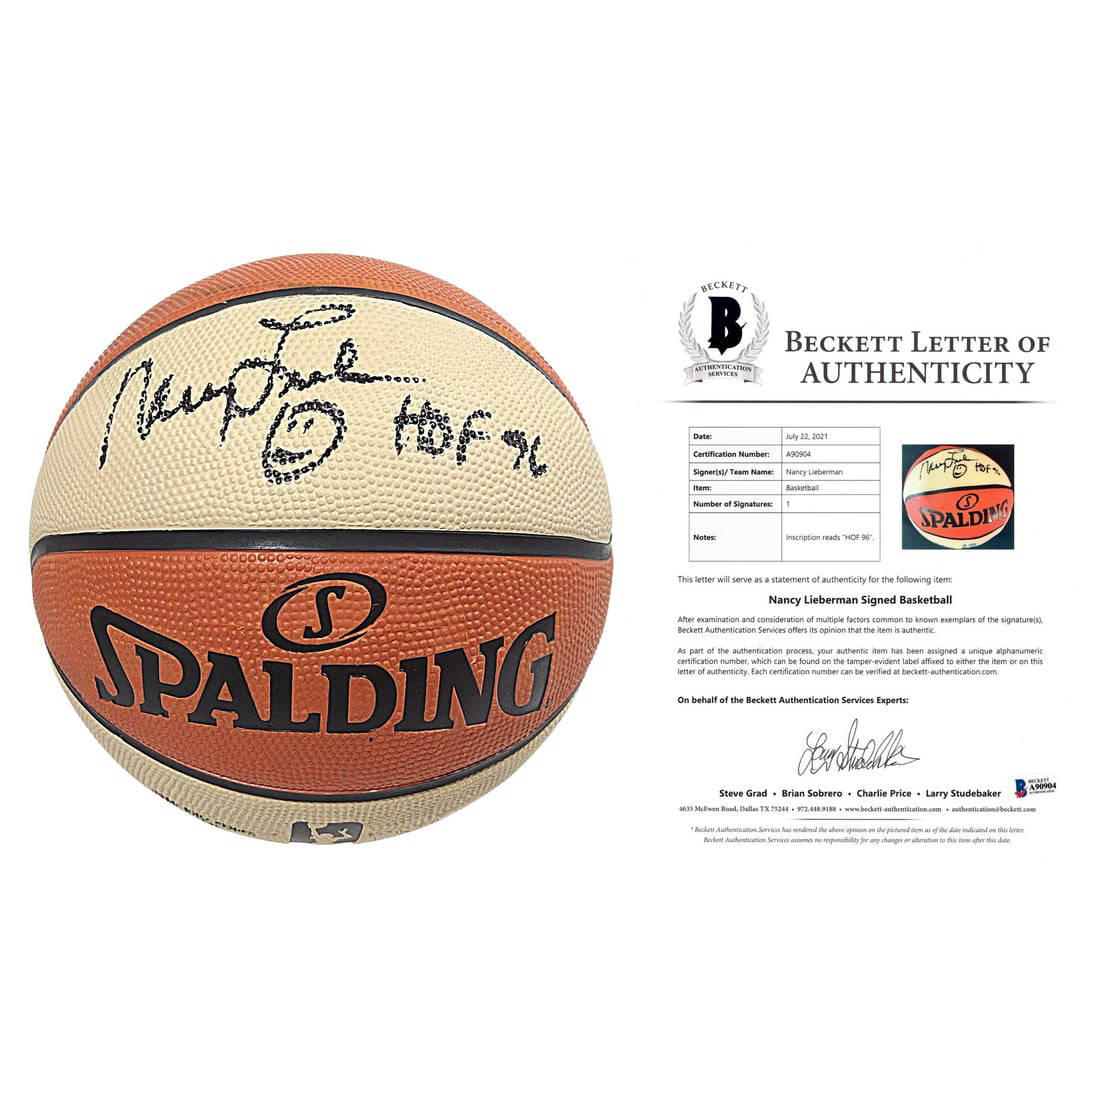 Nancy Lieberman
HOF 96
S
SPALDING
BECKETT
B
AUTHENTICATION
SERVICES
BECKETT LETTER OF
AUTHENTICITY
Date: July 22, 2021
Certification Number: A90904
Signer(s)/ Team Name: Nancy Lieberman
Item: Basketball
Number of Signatures: 1
Notes: Inscription reads "HOF 96".
HOF 96
SPALDING
This letter will serve as a statement of authenticity for the following item:
Nancy Lieberman Signed Basketball
After examination and consideration of multiple factors common to known exemplars of the signature(s),
Beckett Authentication Services offers its opinion that the item is authentic.
As part of the authentication process, your authentic item has been assigned a unique alphanumeric
certification number, which can be found on the tamper-evident label affixed to either the item or on this
letter of authenticity. Each certification number can be verified at beckett-authentication.com.
On behalf of the Beckett Authentication Services Experts:
Steve Grad • Brian Sobrero • Charlie Price • Larry Studebaker
BECKETT
A90904
4635 McEwen Road, Dallas TX 75244 • 972.448.9188 • www.beckett-authentication.com • authentication@beckett.com
* Beckett Authentication Services has rendered the above opinion on the pictured item as of the date indicated on this letter.
Beckett Authentication Services assumes no responsibility for any changes or alteration to this item after this date.